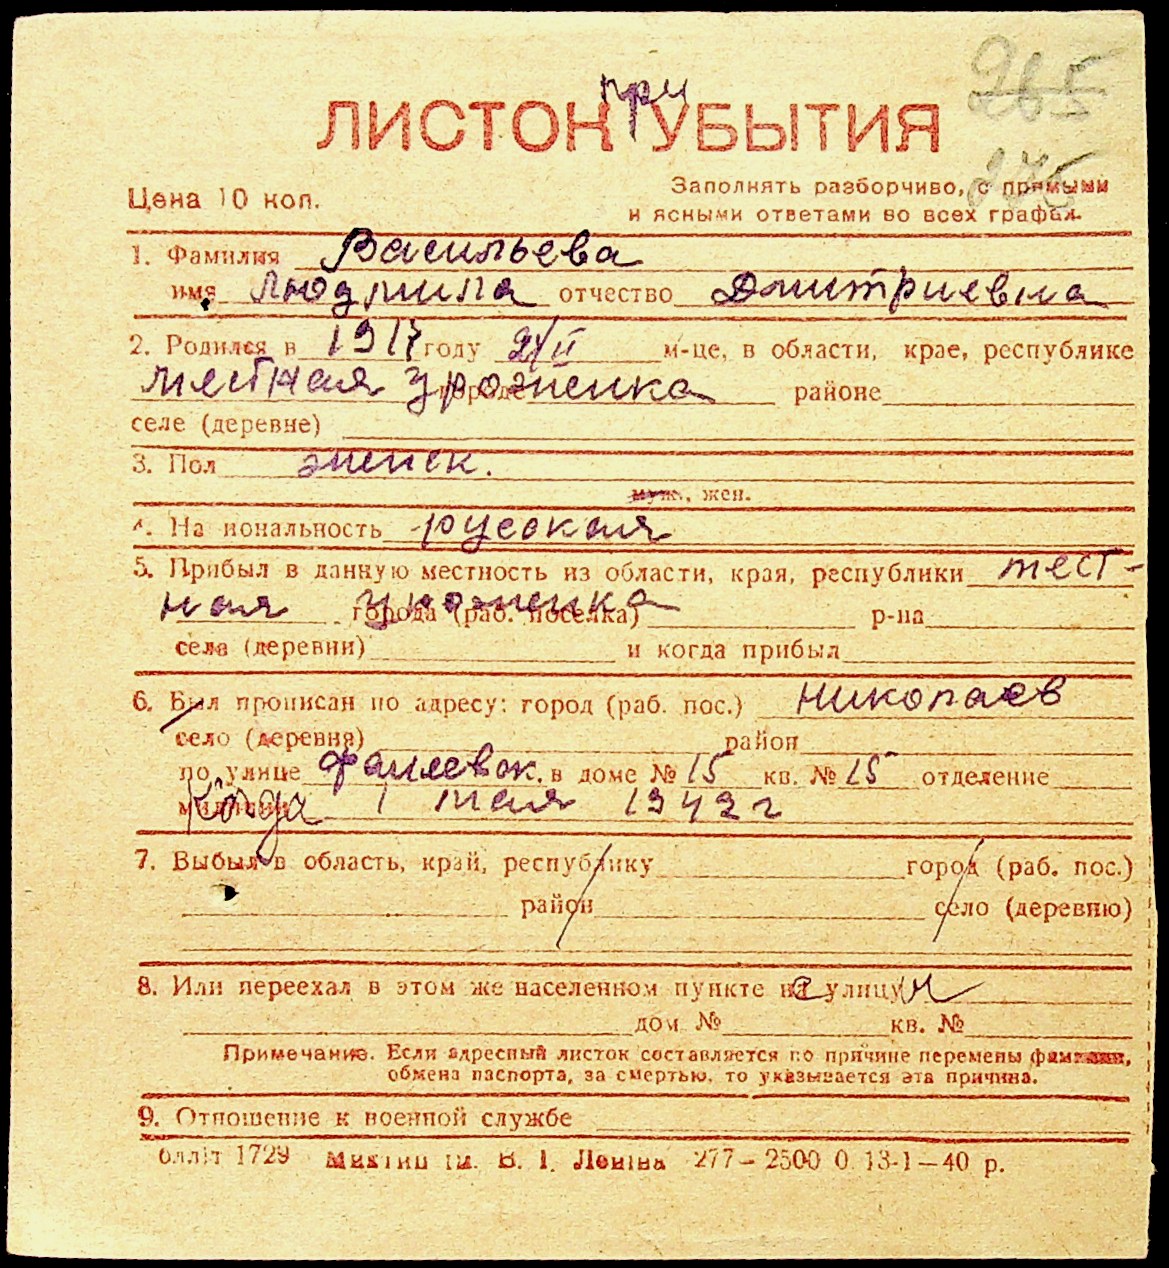 265
при
ЛИСТОК УБЫТИЯ
275
Цена 10 коп.
Заполнять разборчиво, с прямыми
и ясными ответами во всех графах.
1. Фамилия Васильева
имя Людмила отчество Дмитриевна
2. Родился в 1917 году 24/II м-це, в области, крае, республике
местная уроженка городе районе
селе (деревне)
3. Пол женск.
муж., жен.
4. На иональность русская
5. Прибыл в данную местность из области, края, республики мест-
ная уроженка города (раб. поселка) р-на
села (деревни) и когда прибыл
6. Был прописан по адресу: город (раб. пос.) Николаев
село (деревня) район
по улице Фалеевск. в доме № 15 кв. № 15 отделение
милиции Когда 1 мая 1942 г
7. Выбыл в область, край, республику город (раб. пос.)
район село (деревню)
8. Или переехал в этом же населенном пункте на улицу
дом № кв. №
Примечание. Если адресный листок составляется по причине перемены фамилии,
обмена паспорта, за смертью, то указывается эта причина.
9. Отношение к военной службе
блліт 1729 ім. В. І. Леніна 277—2500 0 13-1—40 р.